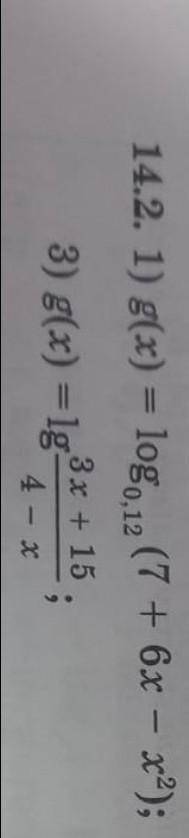 14.2. 1) g(x) = log₀,₁₂ (7 + 6x − x²);
3) g(x) = lg (3x + 15)/(4 − x);